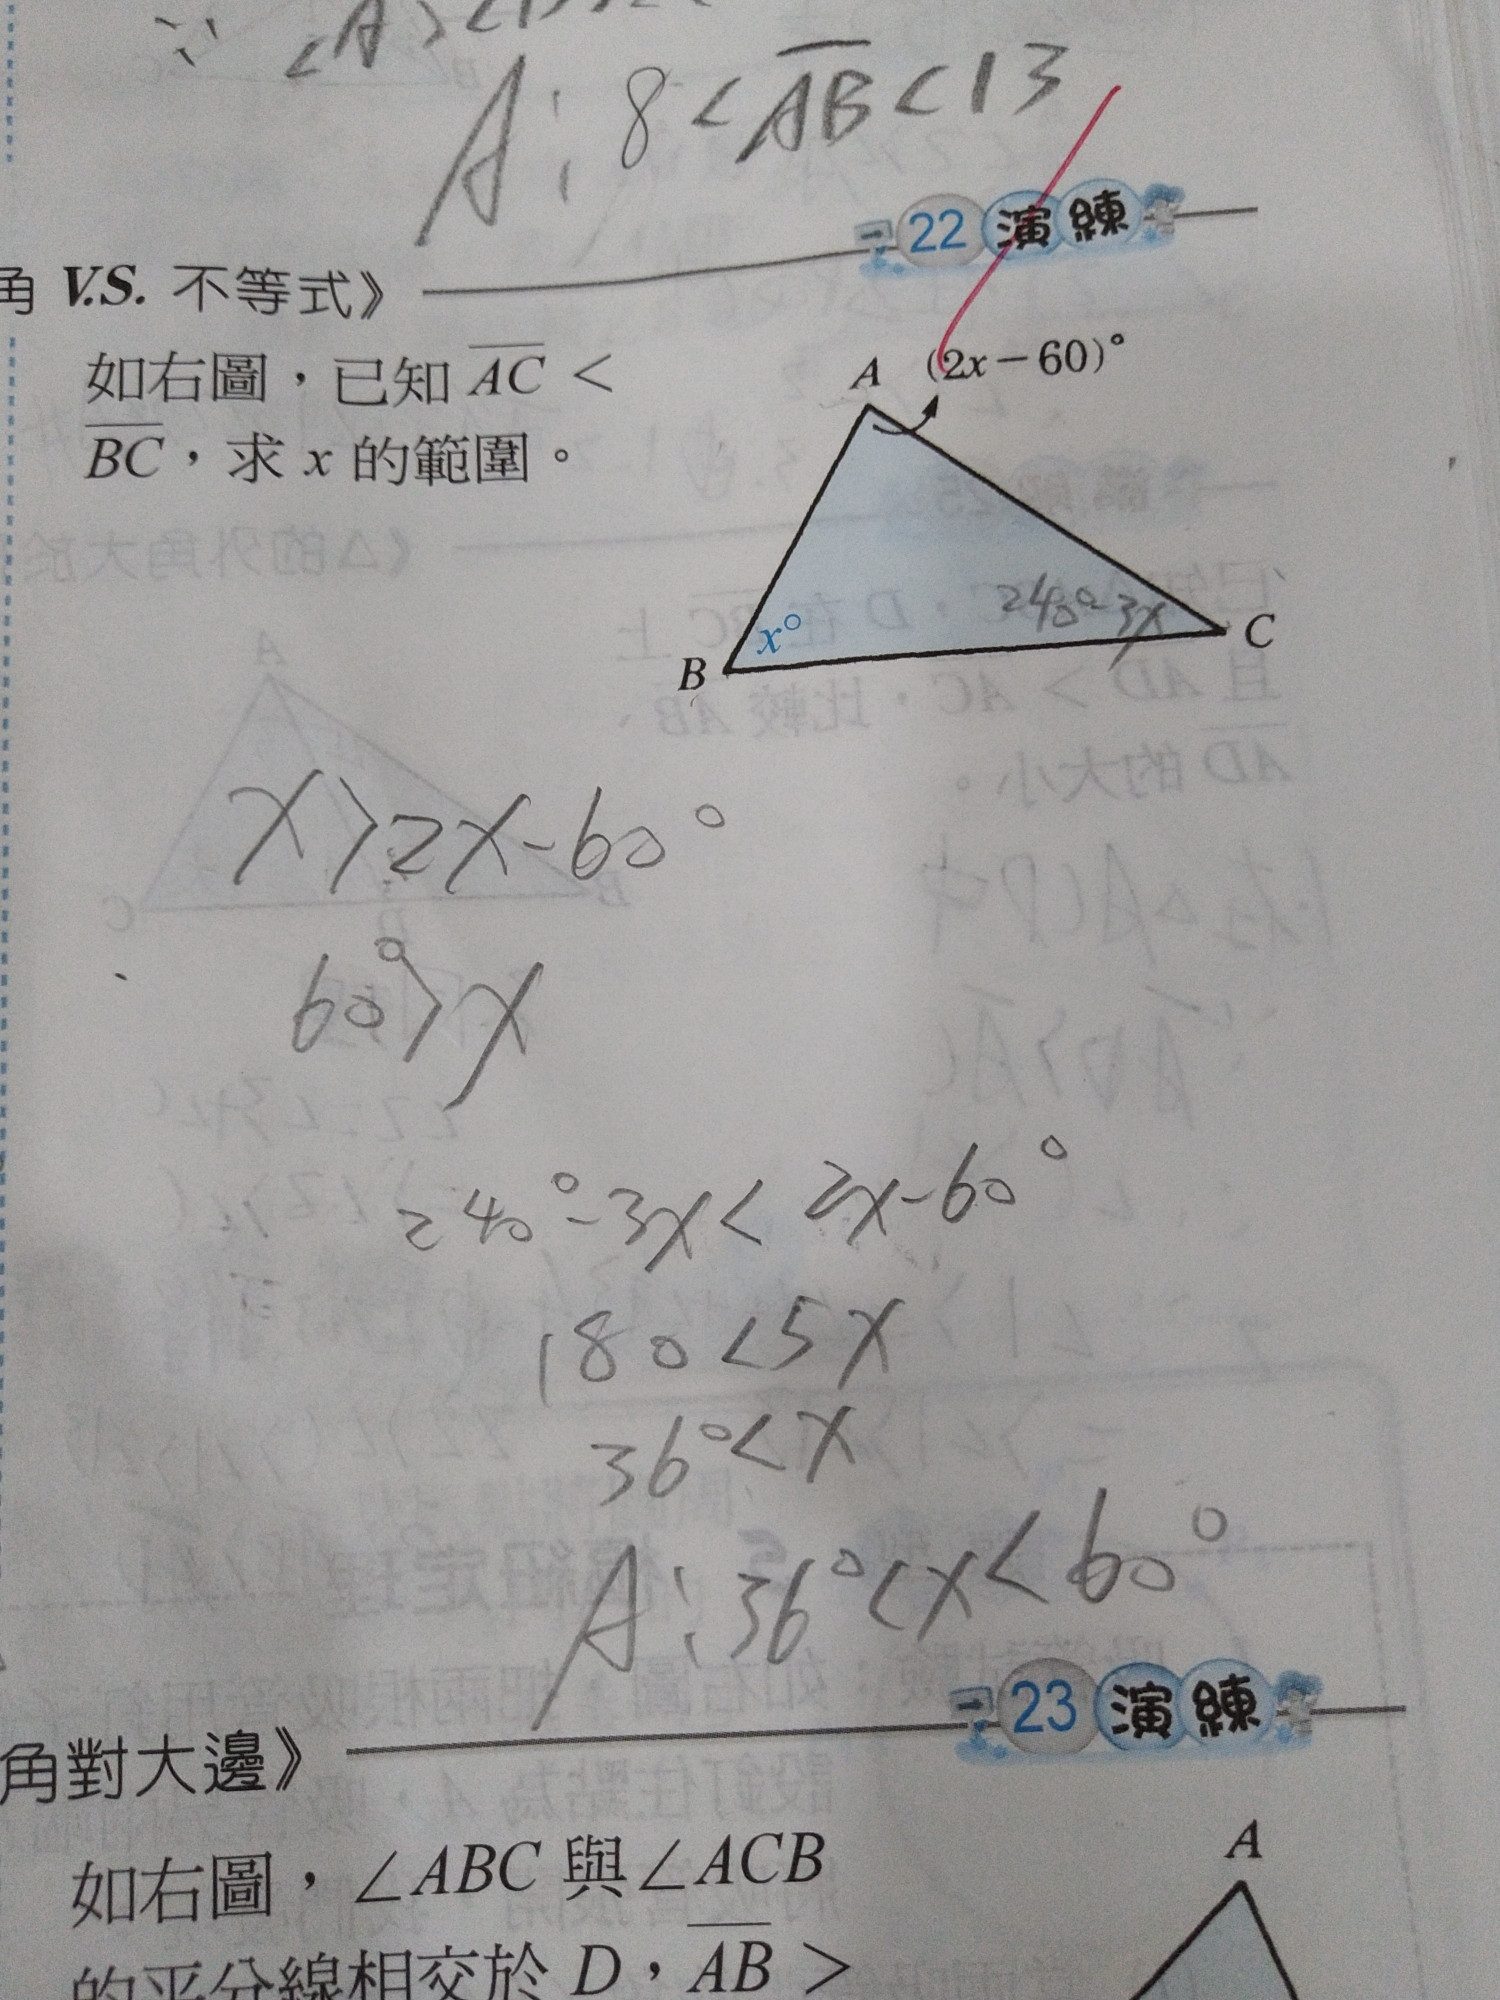 A: 8 < AB < 13
22 演練
角 V.S. 不等式》
如右圖，已知 AC <
BC，求 x 的範圍。
A (2x－60)°
x°
240°-3x
B
C
x>2x-60°
60°>x
240°-3x< 2x-60°
180<5x
36°<x
A: 36°<x<60°
23 演練
角對大邊》
如右圖，∠ABC 與∠ACB
的平分線相交於 D，AB >
A